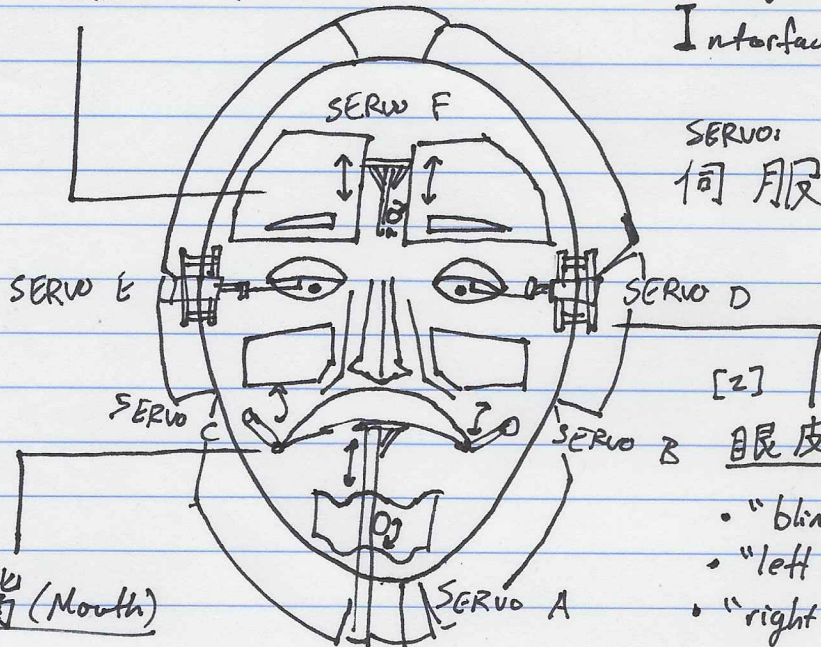 Interfac
SERVO F
SERVO:
伺服
SERVO E
SERVO D
[2]
眼皮
SERVO C
SERVO B
• "blin
• "left
• "right
(Mouth)
SERVO A